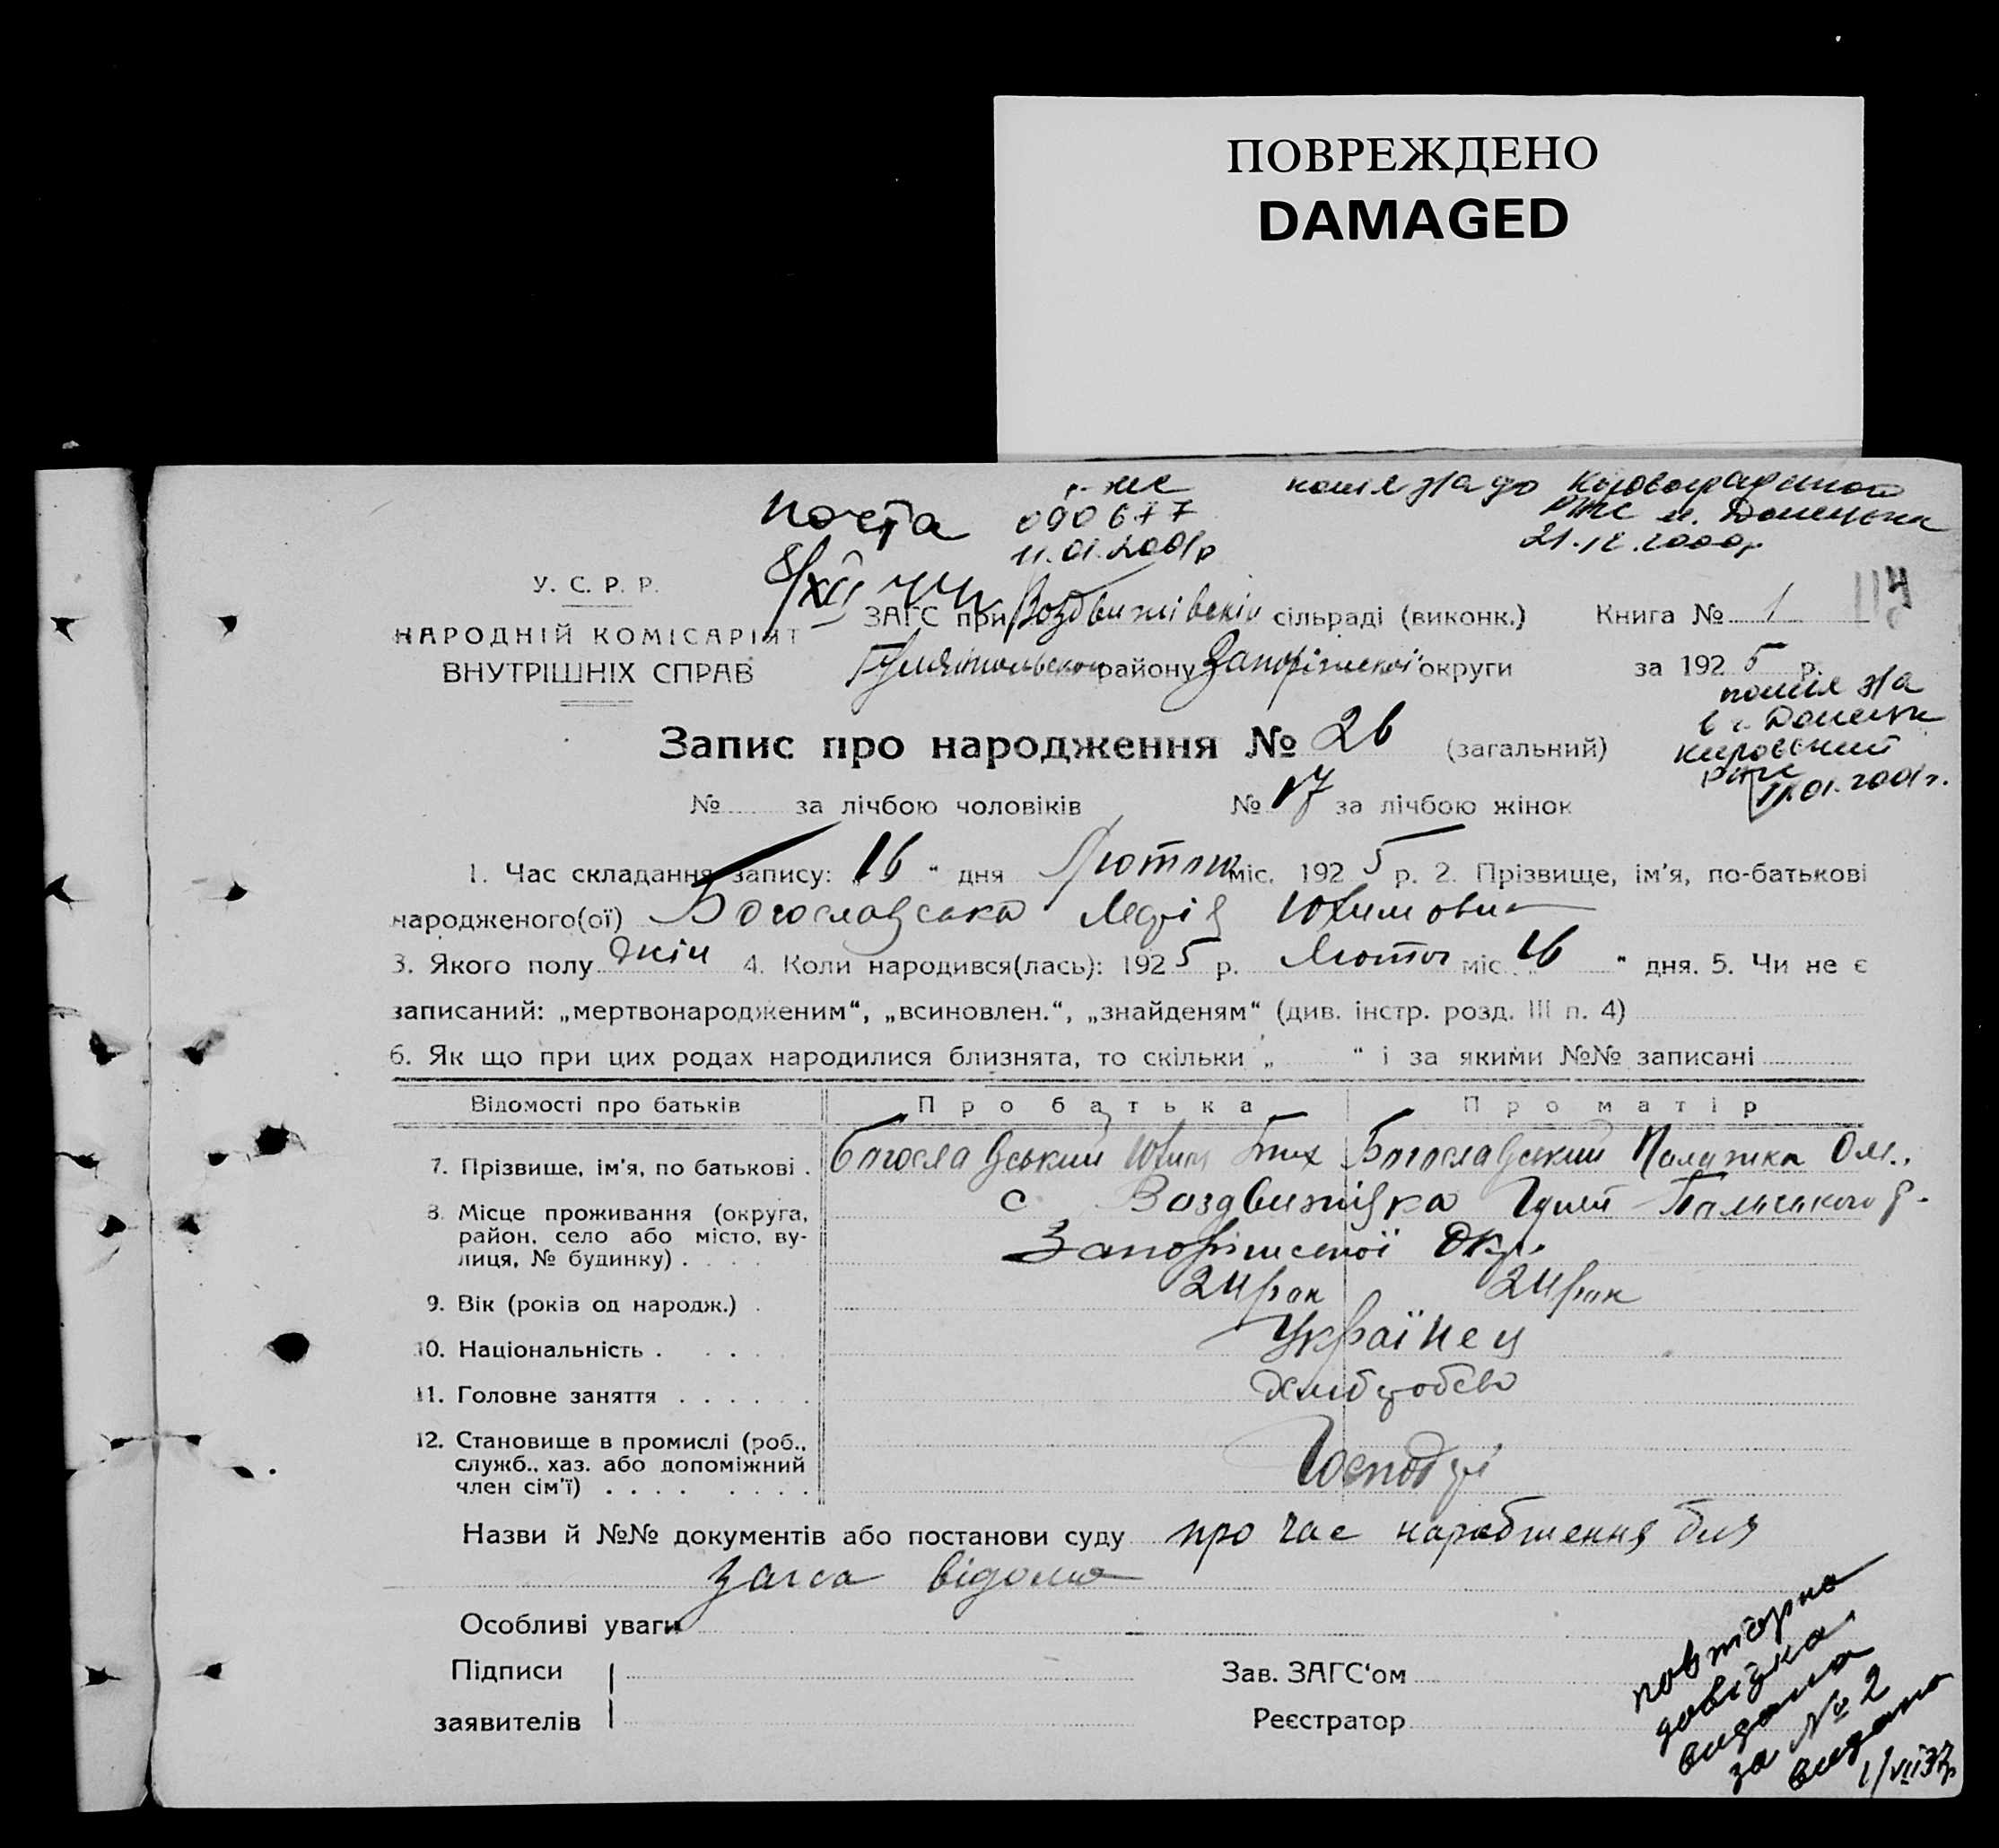 ПОВРЕЖДЕНО
DAMAGED
почта
090677
11.01.2001р
копія
21.12.2000р.
У. С. Р. Р.
НАРОДНІЙ КОМІСАРІЯТ
ВНУТРІШНІХ СПРАВ
ЗАГС при Воздвижівскій сільраді (виконк.) Книга № 1
району Запоріжської округи за 1925 р.
в г. Донецк
Кировский
11.01.2001г.
Запис про народження № 26 (загальний)
№ за лічбою чоловіків № 17 за лічбою жінок
1. Час складання запису: „16“ дня Лютого міс. 1925 р. 2. Прізвище, ім'я, по-батькові
народженого(ої) Богославська Марія Юхимовна
3. Якого полу жін 4. Коли народився(лась): 1925 р. Лютого міс. 16 “ дня. 5. Чи не є
записаний: „мертвонародженим“, „всиновлен.“, „знайденям“ (див. інстр. розд. III п. 4)
6. Як що при цих родах народилися близнята, то скільки „ “ і за якими №№ записані
Відомості про батьків Про батька Про матір
7. Прізвище, ім'я, по батькові . Богославський Юхим Богославський Палажка Ом.,
8. Місце проживання (округа, район, село або місто, вулиця, № будинку) . . . . с Воздвижівка
Запоріжської Окр.
9. Вік (років од народж.) . 24 рок 24 рок
10. Національність . . . . Українец
11. Головне заняття . . . . . . Хлібороб
12. Становище в промислі (роб., служб., хаз. або допоміжний член сім'ї) . . . . . . . . Господарі
Назви й №№ документів або постанови суду про час народження
загса відомо
Особливі уваги
Підписи Зав. ЗАГС‘ом
заявителів Реєстратор
повторна
довідка
видана
за № 2
видано
1/VII 37р